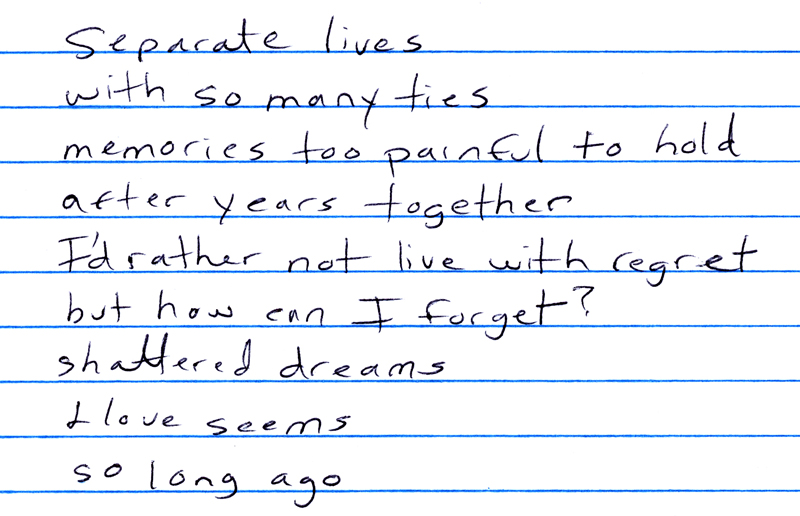 Separate lives
with so many ties
memories too painful to hold
after years together
I'd rather not live with regret
but how can I forget?
shattered dreams
& love seems
so long ago